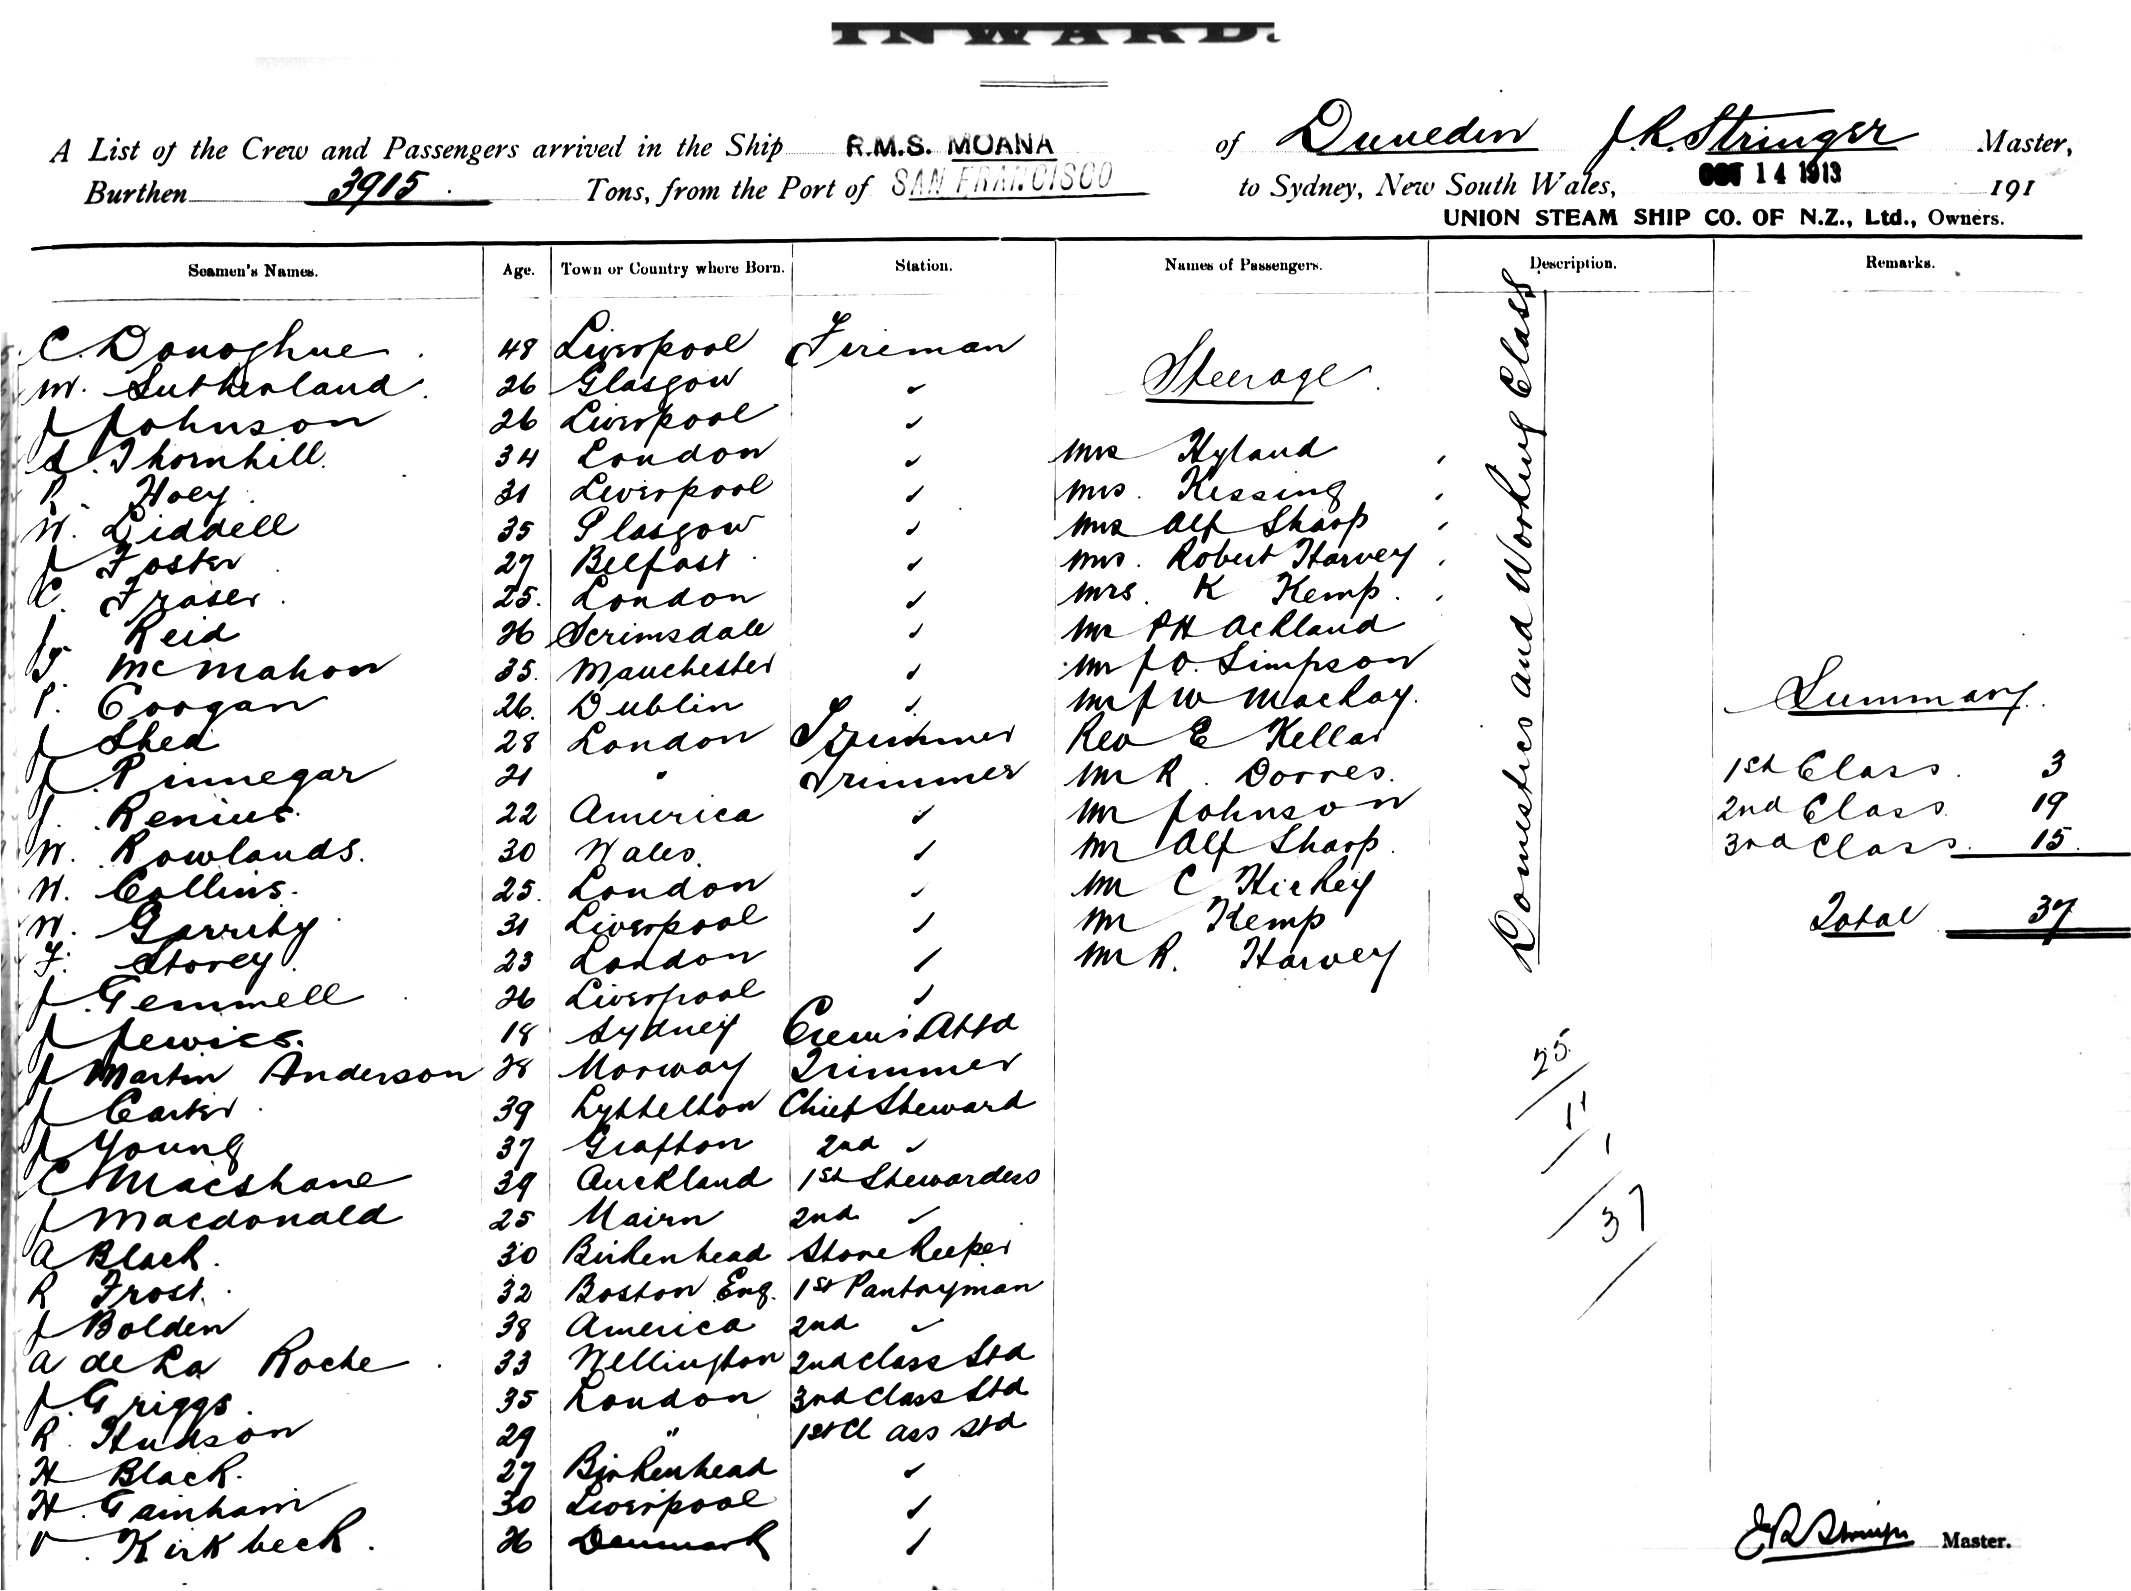 INWARD.
A List of the Crew and Passengers arrived in the Ship R.M.S. MOANA of Dunedin J.R. Stringer Master,
Burthen 3915 Tons, from the Port of SAN FRANCISCO to Sydney, New South Wales, OCT 14 1913 191
UNION STEAM SHIP CO. OF N.Z., Ltd., Owners.
Seamen's Names. Age. Town or Country where Born. Station. Names of Passengers. Description. Remarks.
C. Donoghue 48 Liverpool Fireman
M. Sutherland 26 Glasgow ✓ Steerage
J Johnson 26 Liverpool ✓
S. Thornhill 34 London ✓ Mrs Hyland
R. Hoey 31 Liverpool ✓ Mrs. Kissing
W. Liddell 35 Glasgow ✓ Mrs Alf Sharp
J Foster 27 Belfast ✓ Mrs. Robert Harvey
C. Fraser 25. London ✓ Mrs. K Kemp.
J. Reid 26 Scrimsdale ✓ Mr P H Ackland
T. McMahon 35. Manchester ✓ Mr J O. Simpson
P. Coogan 26. Dublin ✓ Mr J W Mackay.
J Shea 28 London Trimmer Rev E Kellar
J. Pinnegar 21 " Trimmer Mr R. Dorres.
J. Renius. 22 America ✓ Mr Johnson
W. Rowlands. 30 Wales. ✓ Mr Alf Sharp.
W. Collins. 25. London ✓ Mr C Hickey
W. Garrity 31 Liverpool ✓ Mr Kemp
F. Storey. 23 London ✓ Mr R. Harvey
J. Gemmell 26 Liverpool ✓
J Jewics. 18 Sydney Crew's Attd
J Martin Anderson 28 Norway Trimmer
J Carter 39 Lyttelton Chief Steward
J Young 37 Grafton 2nd ✓
C Macshane 39 Auckland 1st Stewardess
J Macdonald 25 Nairn 2nd ✓
A Black. 30 Birkenhead Storekeeper
R Frost. 32 Boston Eng. 1st Pantryman
J Bolden 38 America 2nd ✓
A de La Roche 33 Wellington 2nd Class Std
J. Griggs. 35 London 3rd Class Std
R. Hudson 29 " 1st Class Std
H Black. 27 Birkenhead ✓
H. Gainham 30 Liverpool ✓
V. Kirkbeck. 26 Denmark ✓
Domestics and Working Class
Summary
1st Class. 3
2nd Class. 19
3rd Class. 15.
Total 37
25
11
1
37
J R Stringer Master.